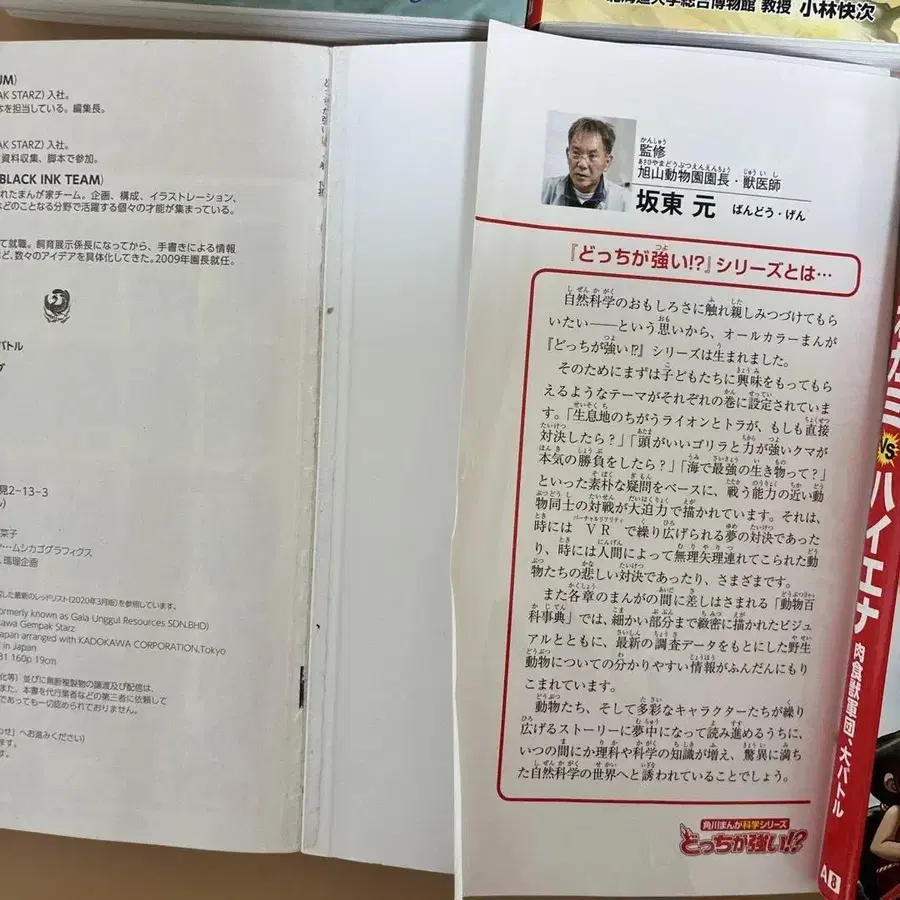 北海道大学総合博物館 教授 小林快次
UM)
AK STARZ) 入社。
本を担当している。編集長。
AK STARZ) 入社。
資料収集、脚本で参加。
BLACK INK TEAM)
れたまんが家チーム。企画、構成、イラストレーション、
などのことなる分野で活躍する個々の才能が集まっている。
て就職。飼育展示係長になってから、手書きによる情報
ど、数々のアイデアを具体化してきた。2009年園長就任。
バトル
見2-13-3
菜子
…ムシカゴグラフィクス
瑪瑠企画
した最新のレッドリスト(2020年3月版)を参照しています。
formerly known as Gala Unggul Resources SDN.BHD)
kawa Gempak Starz
Japan arranged with KADOKAWA CORPORATION,Tokyo
in Japan
81 160p 19cm
化等)並びに無断複製物の譲渡及び配信は、
また、本書を代行業者などの第三者に依頼して
であっても一切認められておりません。
わせ」へお進みください)
ます。
かんしゅう
監修
あさひやまどうぶつえんえんちょう じゅういし
旭山動物園園長・獣医師
坂東 元 ばんどう・げん
『どっちが強い!?』シリーズとは…
自然科学のおもしろさに触れ親しみつづけてもら
いたい――という思いから、オールカラーまんが
『どっちが強い!?』シリーズは生まれました。
そのためにまずは子どもたちに興味をもってもら
えるようなテーマがそれぞれの巻に設定されていま
す。「生息地のちがうライオンとトラが、もしも直接
対決したら?」「頭がいいゴリラと力が強いクマが
本気の勝負をしたら?」「海で最強の生き物って?」
といった素朴な疑問をベースに、戦う能力の近い動
物同士の対戦が大迫力で描かれています。それは、
時にはVRで繰り広げられる夢の対決であった
り、時には人間によって無理矢理連れてこられた動
物たちの悲しい対決であったり、さまざまです。
また各章のまんがの間に差しはさまれる「動物百
科事典」では、細かい部分まで緻密に描かれたビジュ
アルとともに、最新の調査データをもとにした野生
動物についての分かりやすい情報がふんだんにもり
こまれています。
動物たち、そして多彩なキャラクターたちが繰り
広げるストーリーに夢中になって読み進めるうちに、
いつの間にか理科や科学の知識が増え、驚異に満ち
た自然科学の世界へと誘われていることでしょう。
角川まんが科学シリーズ
どっちが強い!?
VS
ハイエナ 肉食獣軍団、大バトル
A8